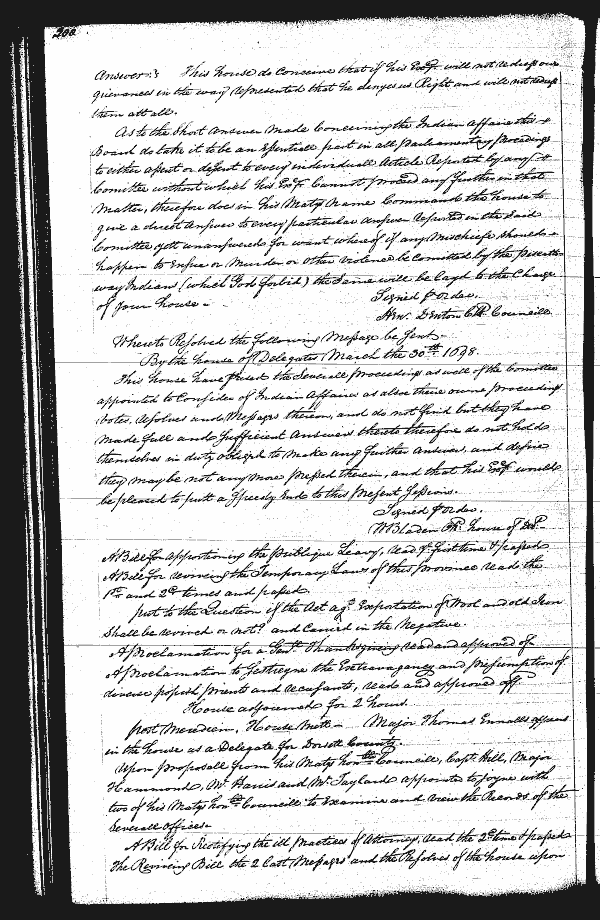 200
Answer: This house do Conceive that if his Excy. will not redress our
grievances in the way represented that he denyes us Right and will not redress
them att all.
As to the Short Answer made Concerning the Indian Affaire this
Board do take it to be an Essentiall part in all Parliamentary proceedings
to either assert or dissent to every individuall Article Reported by any
Comittee without which his Excy. Cannot proceed any further in that
Matter, therefore does in his Matys Name Command the house to
give a direct Answer to every particular Answer reported in the Said
Comittee yett unanswered for want whereof if any Mischiefe should
happen to Ensue or Murder or other violence be Comitted by the
way Indians (which God forbid) the Same will be layd to the Charge
of your house.
Signed p Order.
Hen. Denton Clk Councill.
Whereto Resolved the following Message be Sent.
By the house of Delegates March the 30th 1698.
This house have the Severall proceedings as well of the Comittee
appointed to Consider of Indian Affaires as alsoe there owne proceedings
votes, resolves and Messages thereon, and do not find but they have
made full and Sufficient Answers thereto therefore do not hold
themselves in duty obliged to make any further answer, and desire
they may be not any more pressed therein, and that his Excy would
be pleased to putt a Speedy End to this present Sessions.
Signed p Order.
W Bladen Clk. house of Del.
A Bill for apportioning the Publique Leavy, read ye. first time & passed
A Bill for reviveing the Temporary Laws of this Province read the
1st and 2d times and passed.
put to the Question if the Act agt. Exportation of Wool and old Iron
Shall be revived or not? and Carried in the Negative.
A Proclamation for a Genll. Thanksgiving read and approved of.
A Proclamation to restreyne the Extravagancy and presumption of
diverse popish preists and recusants, read and approved off.
House adjourned for 2 hours.
post Meridiem. House Mett. Major Thomas Ennalls appears
in the house as a Delegate for Dorsett County.
Upon proposall from his Matys honble Councill, Capt. Hill, Major
Hammond, Mr. Harris and Mr. Tayland appointed to joyne with
two of his Matys honble Councill to Examine and view the Records of the
Severall offices.
A Bill for Rectifying the ill practices of Attorneys, read the 2d time & passed
The Reviving Bill the 2 Last Messages and the Resolves of the house upon